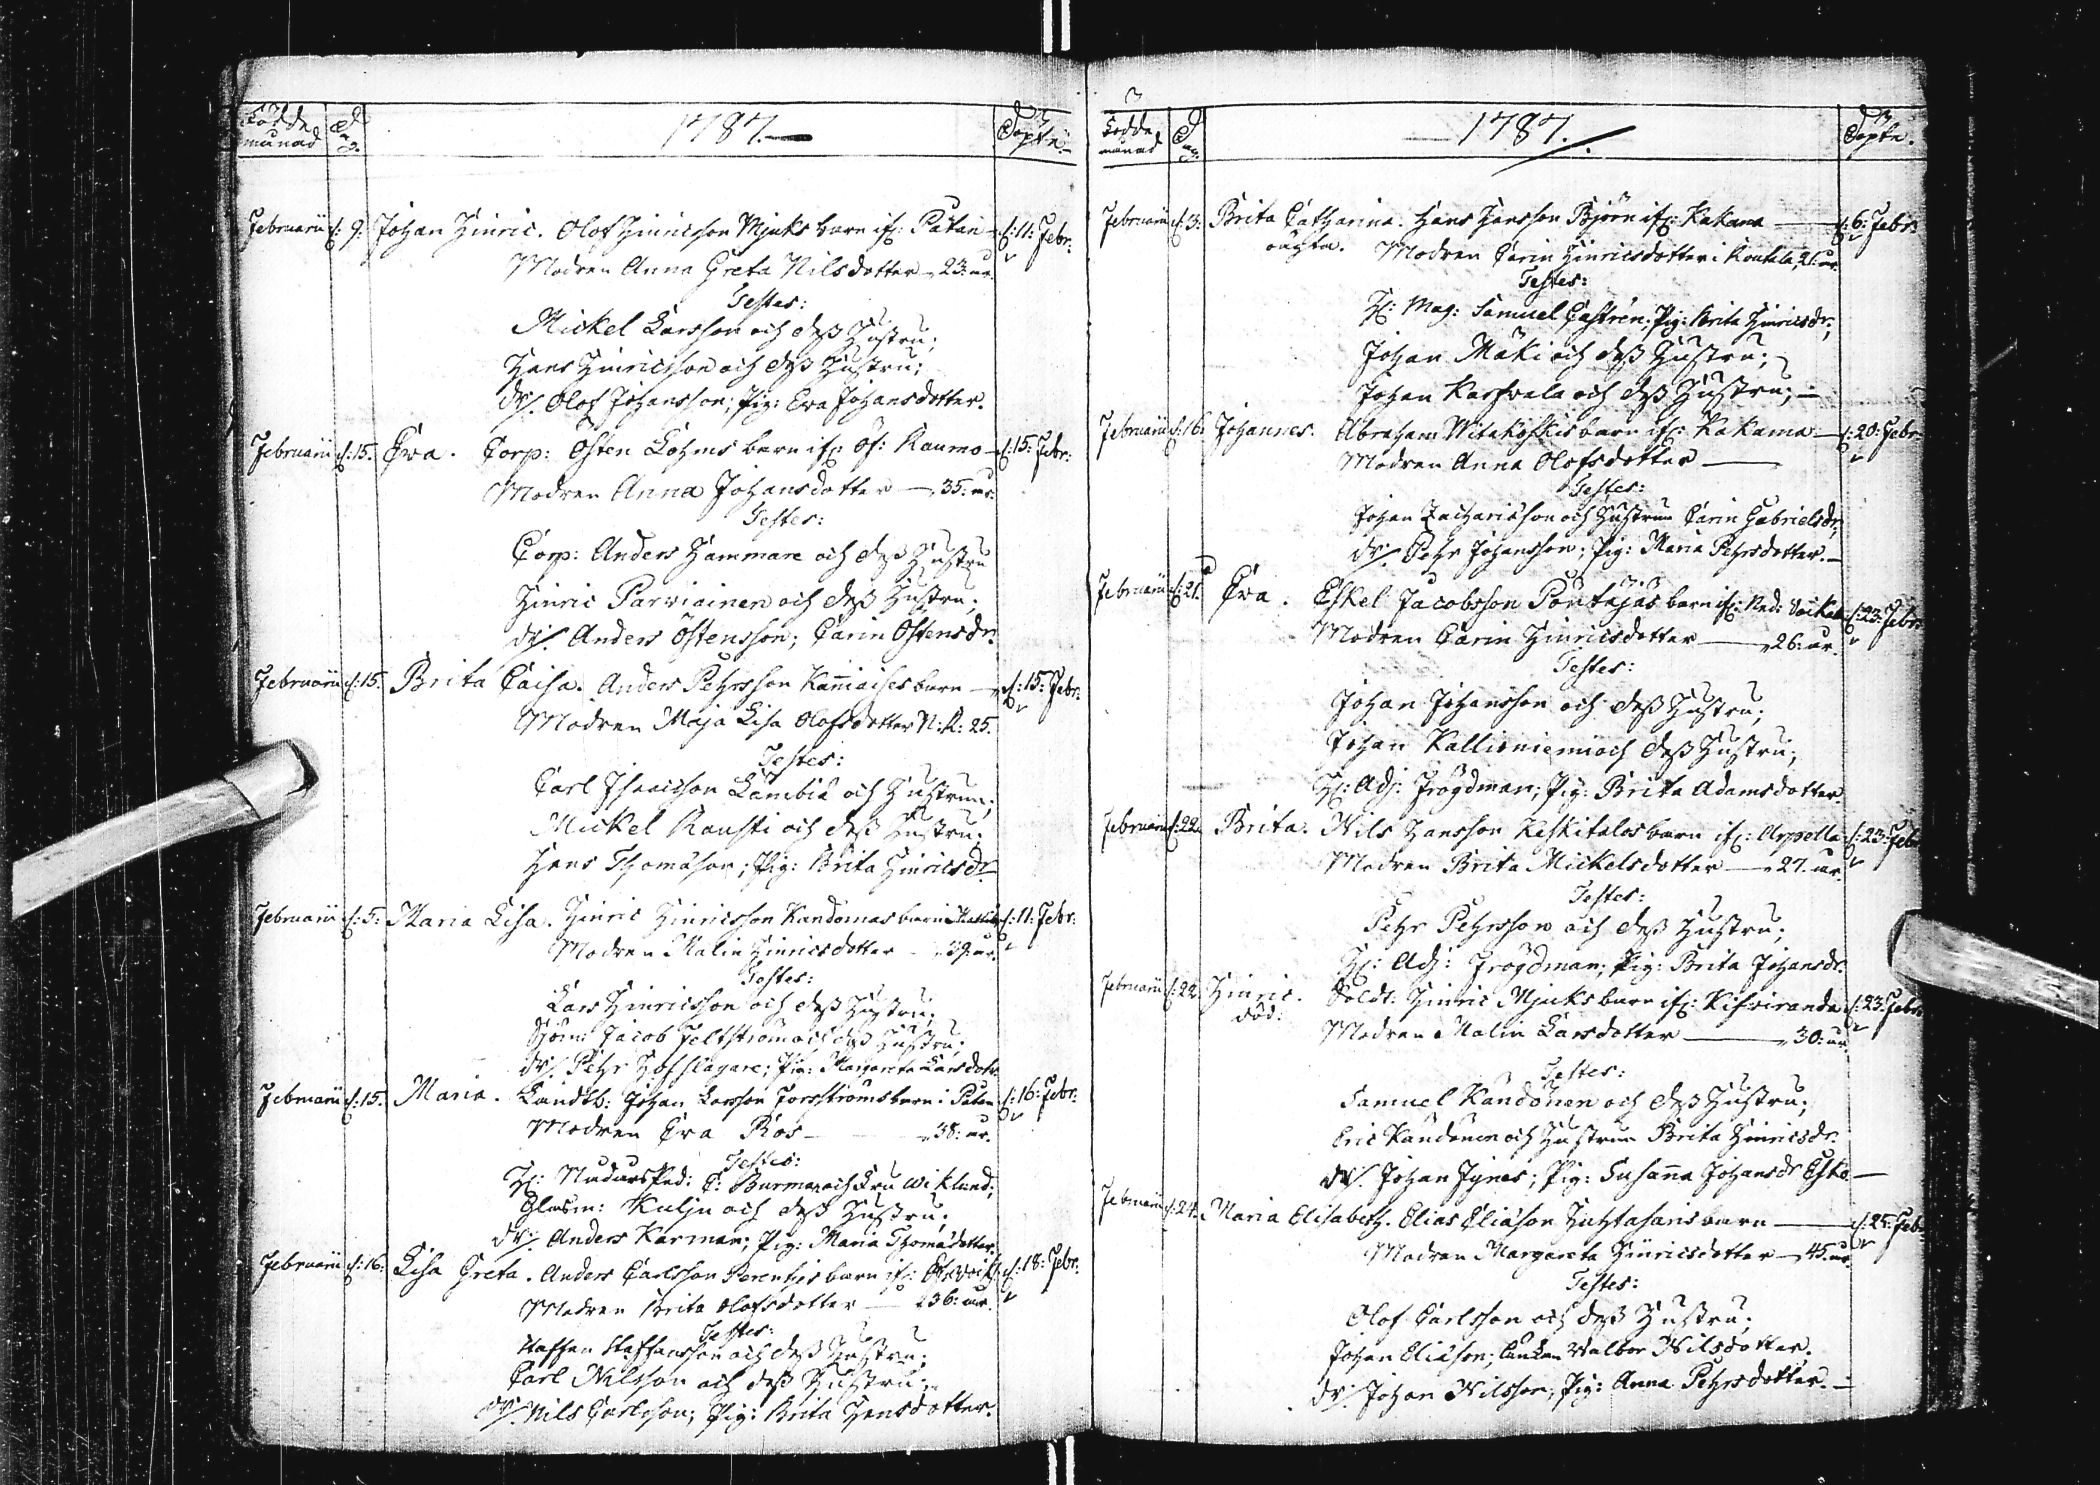 Födde månad
Dag
1787.
Döpte
Februarii d. 9. Johan Hinric. Olof Hinricsson Mjuks barn ifr: Patan d: 11: Febr:
Modren Anna Greta Nilsdotter 23. år.
Testes:
Mickel Larsson och dess Hustru;
Hans Hinricsson och dess Hustru;
dr/. Olof Johansson; Pig: Eva Johansdotter.
Februarii d: 15. Eva. Corp: Östen Lohms barn ifr: Öf: Raumo d: 15: Febr:
Modren Anna Johansdotter 35: år.
Testes:
Corp: Anders Hammare och dess Hustru
Hinric Parviainen och dess Hustru;
dr/. Anders Östensson; Carin Östensdr.
Februarii d: 15. Brita Caisa. Anders Pehrsson Kañiaises barn d: 15: Febr:
Modren Maja Lisa Olofsdotter N: R: 25.
Testes:
Carl Isacsson Lambiå och Hustrun;
Mickel Rausti och dess Hustru;
Hans Thomasson; Pig: Brita Hinricsdr.
Februarii d: 5: Maria Lisa. Hinric Hinricsson Kandomas barn d: 11: Febr:
Modren Malin Hinricsdotter 39. år.
Testes:
Lars Hinricsson och dess Hustru;
Jacob Feltström och dess Hustru;
dr/. Pehr Hofslagare; Pig: Margareta Larsdotr.
Februarii d: 15. Maria. Landtb: Johan Larsson Forsströms barn i Patan d: 16: Febr:
Modren Eva Ros 38: år.
Testes:
H: C: Burman och Fru Wiklund;
Glasm: Kulju och dess Hustru;
dr/. Anders Karman; Pig: Maria Thomædotter.
Februarii d: 16: Lisa Greta. Anders Carlsson Perentzis barn ifr: d: 18: Febr:
Modren Brita Olofsdotter 36: år.
Testes:
Staffan Staffansson och dess Hustru;
Carl Nilsson och dess Hustru;
dr/. Nils Carlsson; Pig: Brita Hansdotter.
3
Födde månad
Dag
1787.
Döpte.
Februarii d. 3. Brita Catharina. Hans Hansson Björn ifr: Kakama d: 6: Febr:
oächta. Modren Carin Hinricsdotter i Koutila, 21: år.
Testes:
H: Mag: Samuel Castrén; Pig: Brita Hinricsdr;
Johan Mäki och dess Hustru;
Johan Karhvala och dess Hustru;
Februarii d: 16. Johannes. Abraham Witakoskis barn ifr: Kakama d: 20: Febr:
Modren Anna Olofsdotter
Testes:
Johan Zachariæson och Hustrun Carin Gabrielsdr;
dr/. Pehr Johansson; Pig: Maria Pehrsdotter.
Februarii d: 21. Eva. Eskel Jacobsson Pontajas barn ifr: Ned: Voikala d: 23: Febr:
Modren Carin Hinricsdotter 26: år.
Testes:
Johan Johansson och dess Hustru;
Johan Kallioniemi och dess Hustru;
H: Adj: Frögdman; Pig: Brita Adamsdotter.
Februarii d: 22. Brita. Nils Hansson Keskitalos barn ifr: Arpella d: 23: Febr
Modren Brita Mickelsdotter 27. år.
Testes:
Pehr Pehrsson och dess Hustru;
H: Adj: Frögdman; Pig: Brita Johansdr.
Februarii d: 22. Hinric. Soldt: Hinric Mjuks barn ifr: Kihviranda d: 23: Febr:
död: Modren Malin Larsdotter 30: år.
Testes:
Samuel Kandonen och dess Hustru;
Eric Kandonen och Hustrun Brita Hinricsdr.
dr/. Johan Fynes; Pig: Susaña Johansdr Esko
Februarii d: 24. Maria Elisabeth. Elias Eliæson Huhtasaris barn d: 25: Febr:
Modren Margareta Hinricsdotter 45. år.
Testes:
Olof Carlsson och dess Hustru;
Johan Eliæson; Enkan Valbor Nilsdotter.
dr/. Johan Nilsson; Pig: Anna Pehrsdotter.